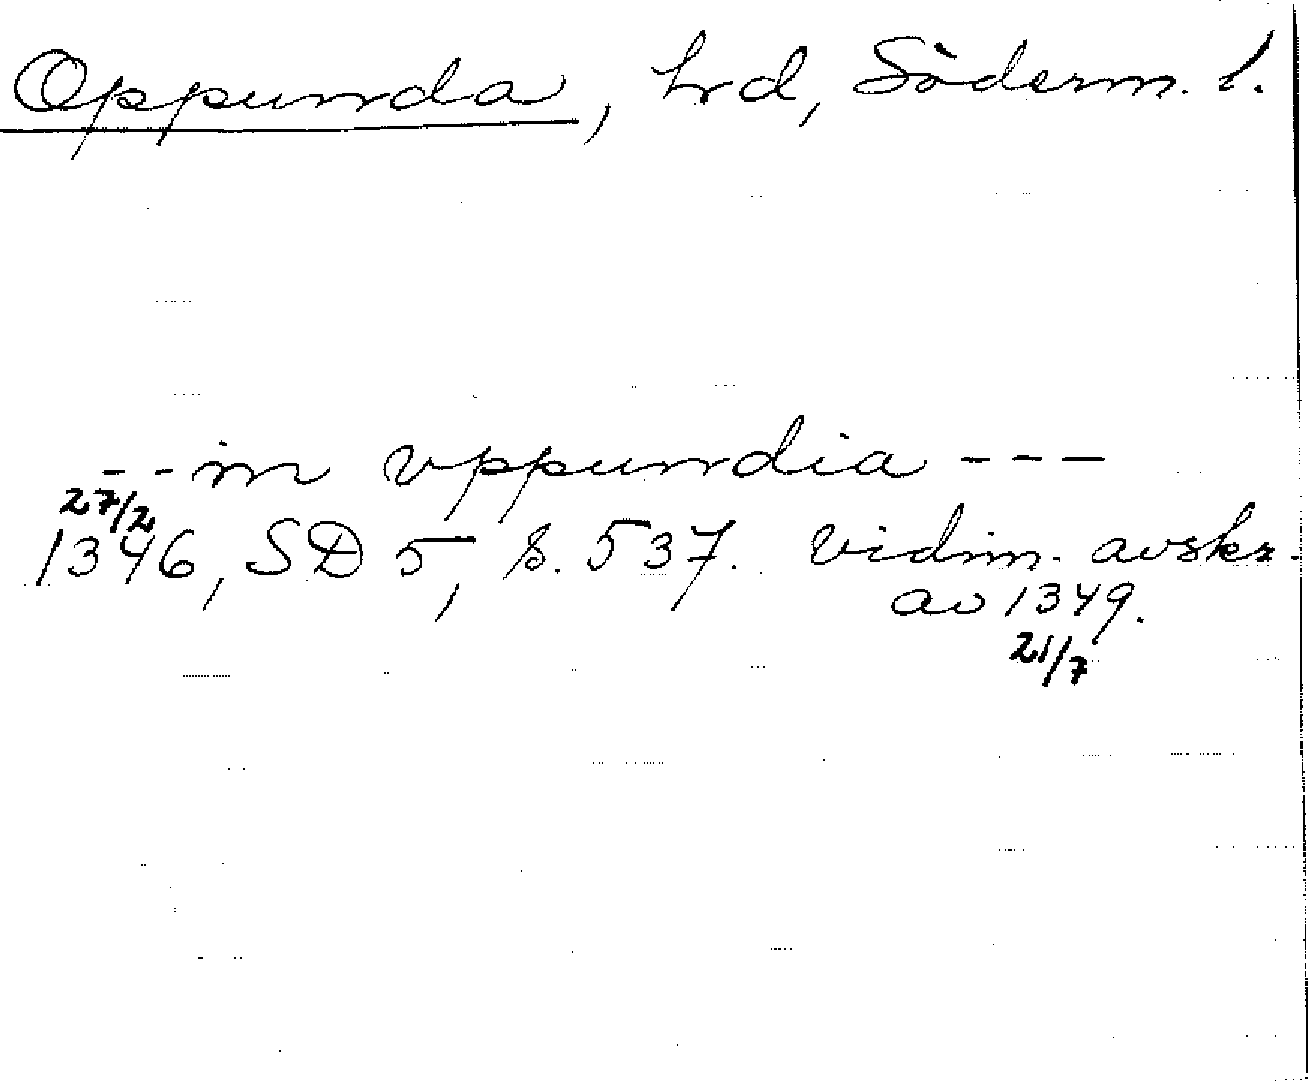 Oppunda, hrd, Söderm. l.
-- in vppundia ---
27/2
1346, SD 5, s. 537. vidim. avskr.
av 1349.
21/7